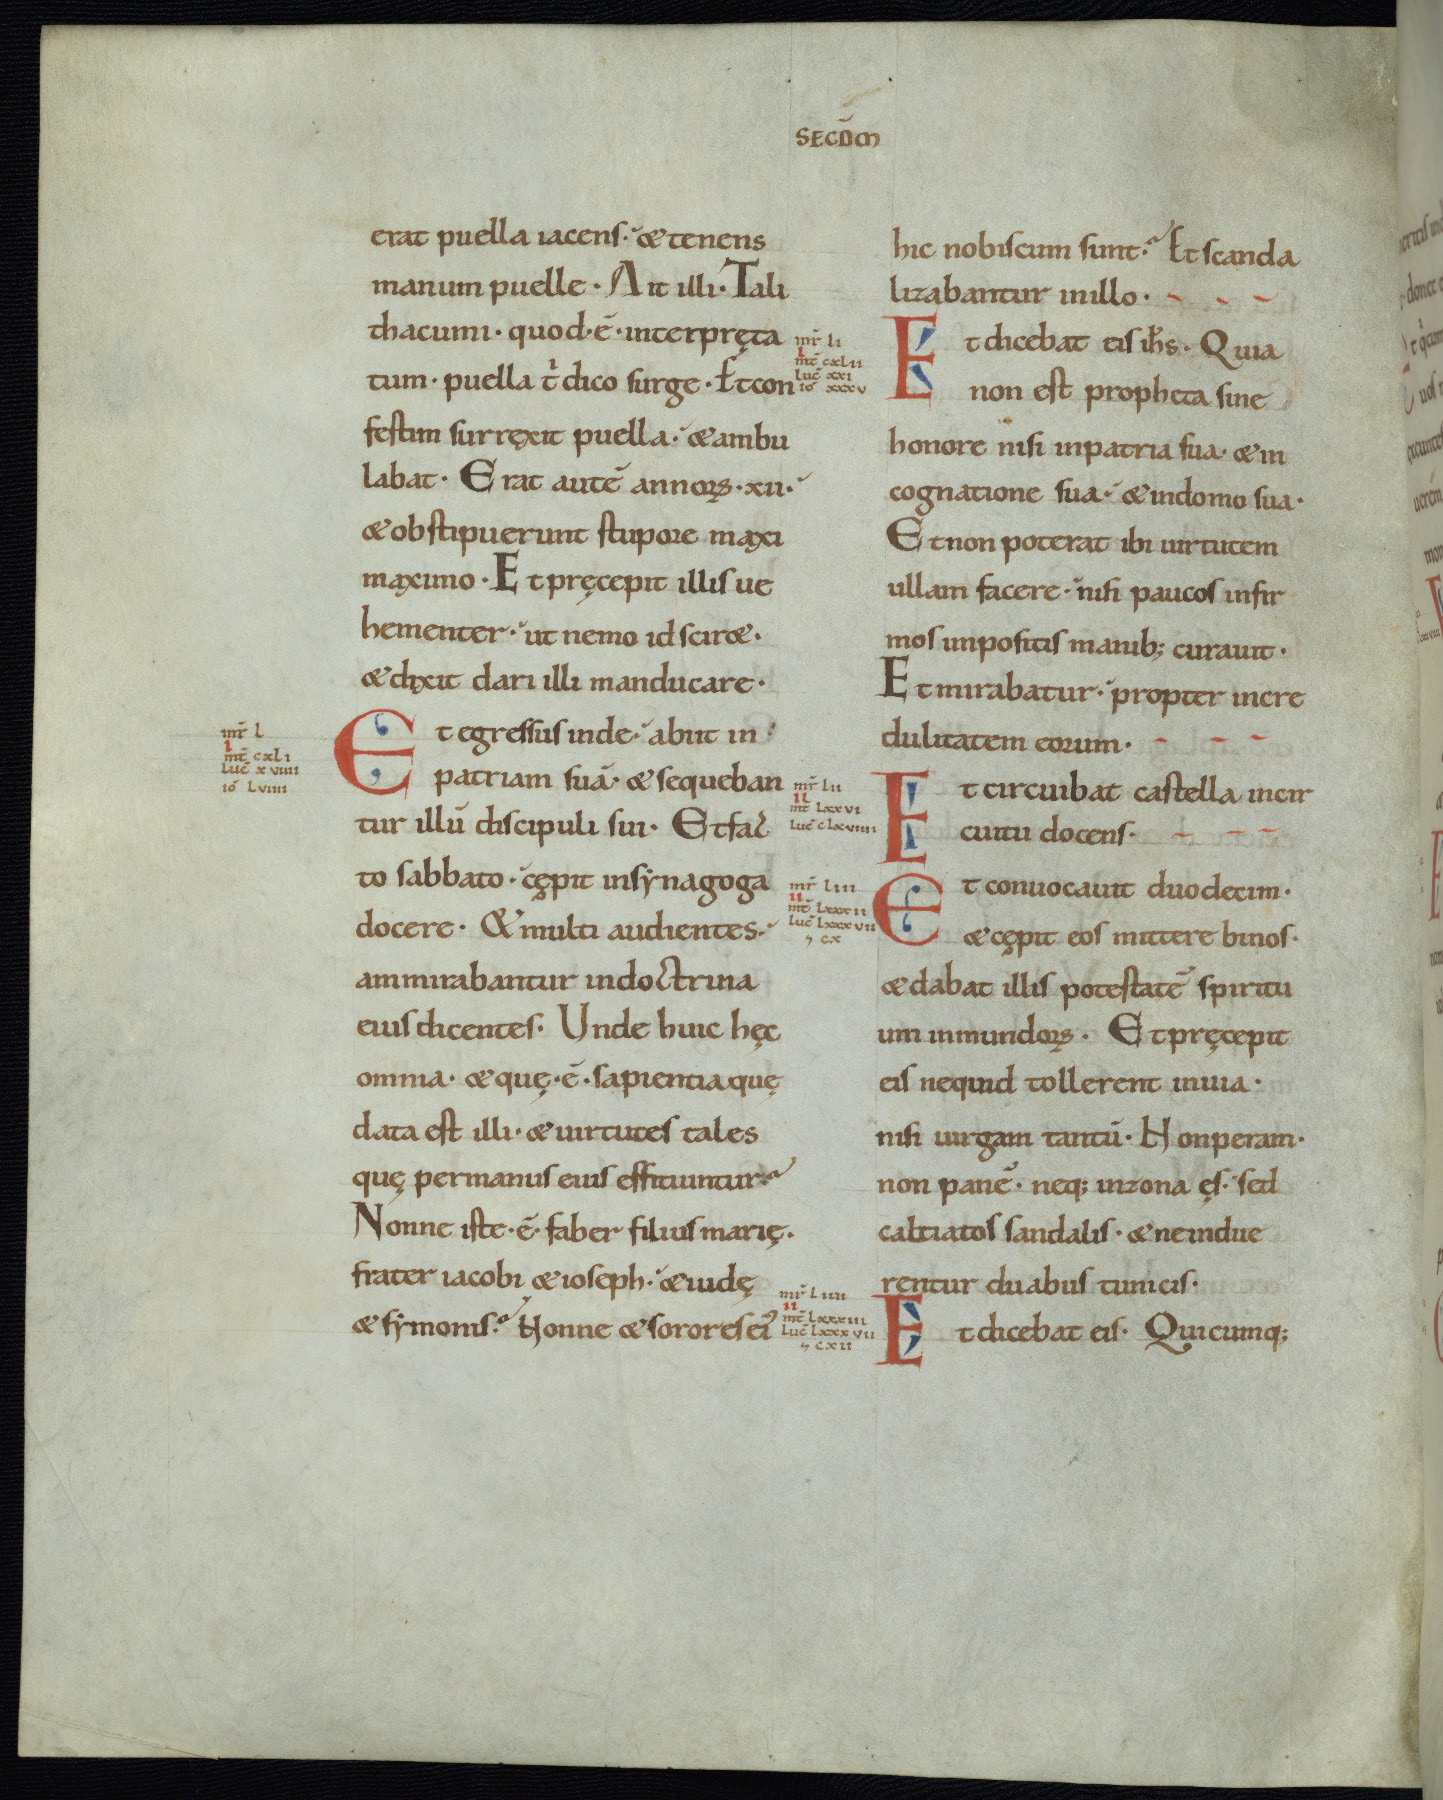 SECDM̄
erat puella iacens· &tenens
manum puelle· Ait illi· Tali
thacumi· quod·ē·interpręta
tum· puella t̄ dico surge· Etcon
festim surrexit puella· &ambu
labat· Erat autē annoꝝ·xii·
&obstipuerunt stupore maxi
maximo· Et pręcepit illis ue
hementer· ut nemo id scir&·
&dixit dari illi manducare·
mr̄ l
i
mt̄ cxli
luc̄ xviiii
io̅ lviiii
Et egressus inde· abiit in
patriam suā· &sequeban
tur illū discipuli sui· Etfac
to sabbato· cępit insẏnagoga
docere· &multi audientes·
ammirabantur indoctrina
eius dicentes· Unde huic hęc
omnia· &quę·ē·sapientia quę
data est illi· &uirtutes tales
quę permanus eius efficiuntur·
Nonne iste·ē·faber filius marię·
frater iacobi &ioseph· &iudę
&sẏmonis· Nonne &sorores ei᾽
hic nobiscum sunt· Et scanda
lizabantur inillo·
mr̄ li
i
mt̄ cxlii
luc̄ xxi
io̅ xxxv
Et dicebat eis ih̄s· Quia
non est propheta sine
honore nisi inpatria sua· &in
cognatione sua· &indomo sua·
Et non poterat ibi uirtutem
ullam facere· nisi paucos infir
mos impositis manib; curauit·
Et mirabatur· propter incre
dulitatem eorum·
mr̄ lii
ii
mt̄ lxxvi
luc̄ clxviiii
Et circuibat castella incir
cuitu docens·
mr̄ liii
ii
mt̄ lxxxii
luc̄ lxxxvii
⁊ cx
Et conuocauit duodecim·
&cępit eos mittere binos·
&dabat illis potestatē spiritu
um inmundoꝝ· Et pręcepit
eis nequid tollerent inuia·
nisi uirgam tantū· Non peram·
non panē· neq; inzona ęs· sed
calciatos sandalis· &neindue
rentur duabus tunicis·
mr̄ liiii
ii
mt̄ lxxxiii
luc̄ lxxxvii
⁊ cxii
Et dicebat eis· Quicumq;